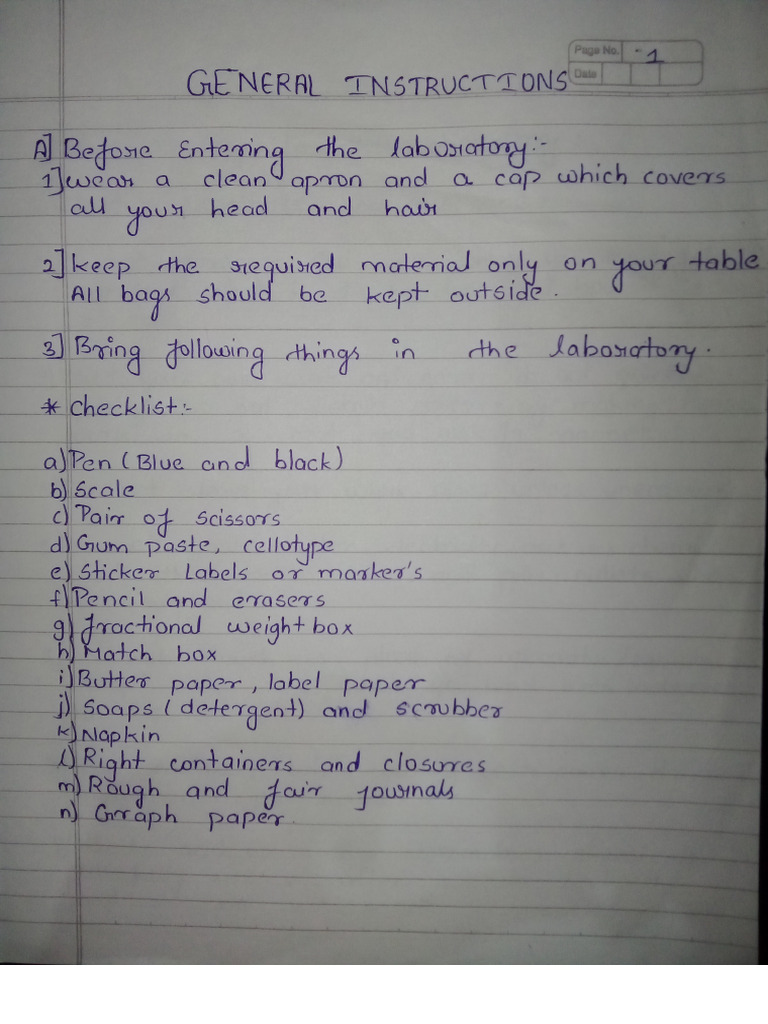 Page No. 1
GENERAL INSTRUCTIONS
Date
A] Before Entering the laboratory:-
1] wear a clean apron and a cap which covers
all your head and hair
2] keep the required material only on your table
All bags should be kept outside.
3] Bring following things in the laboratory.
* checklist:-
a) Pen (Blue and black)
b) Scale
c) Pair of scissors
d) Gum paste, cellotype
e) Sticker Labels or marker's
f) Pencil and erasers
g) fractional weight box
h) Match box
i) Butter paper, label paper
j) Soaps (detergent) and scrubber
k) Napkin
l) Right containers and closures
m) Rough and fair journals
n) Graph paper.